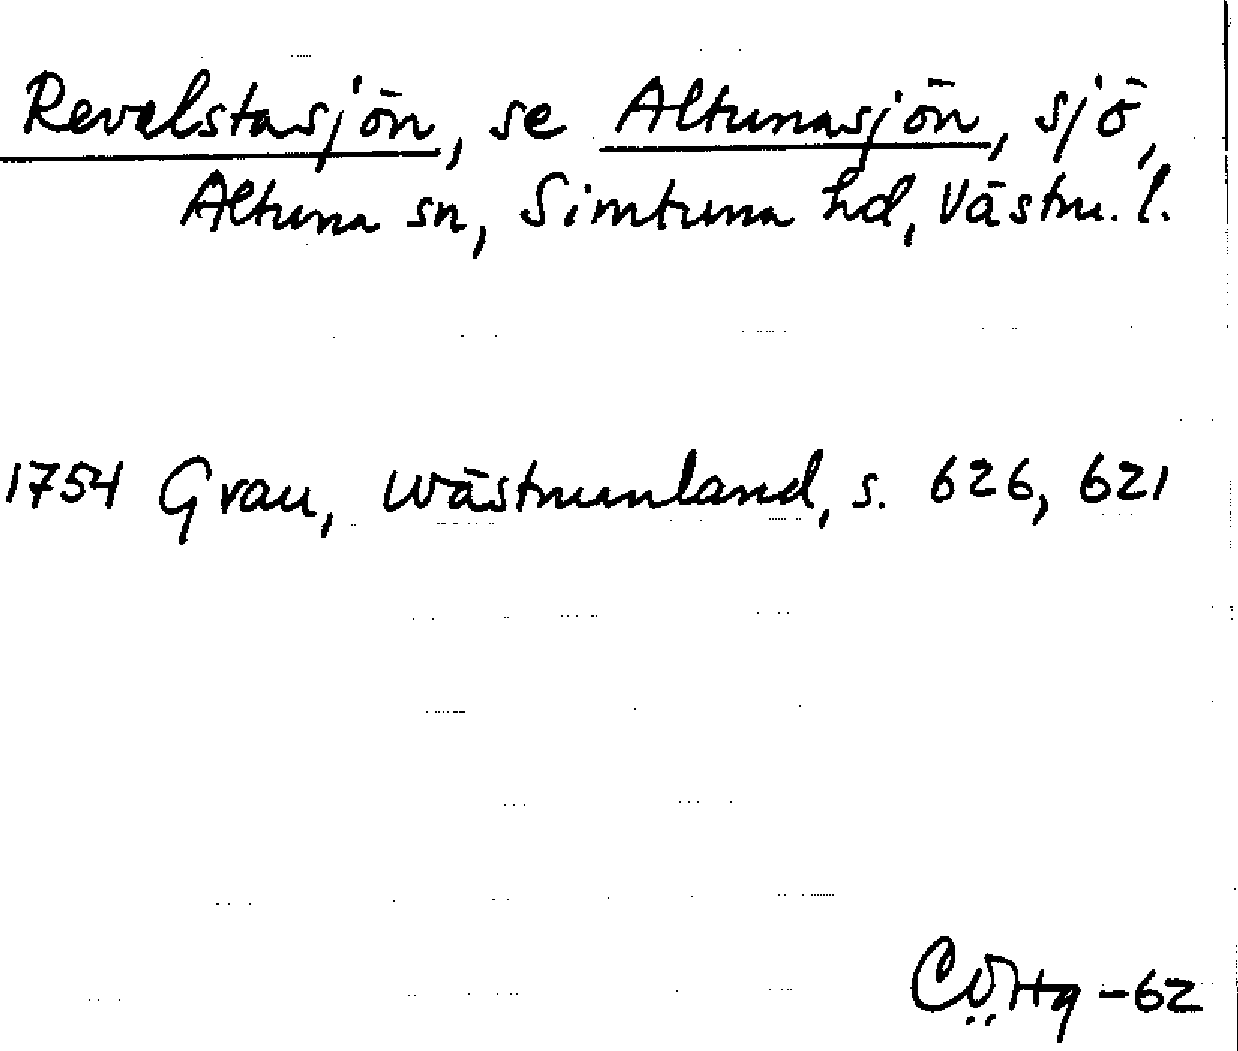 Revelstasjön, se Altunasjön, sjö,
Altuna sn, Simtuna hd, Västm. l.
1754 Grau, Wästmanland, s. 626, 621
-62